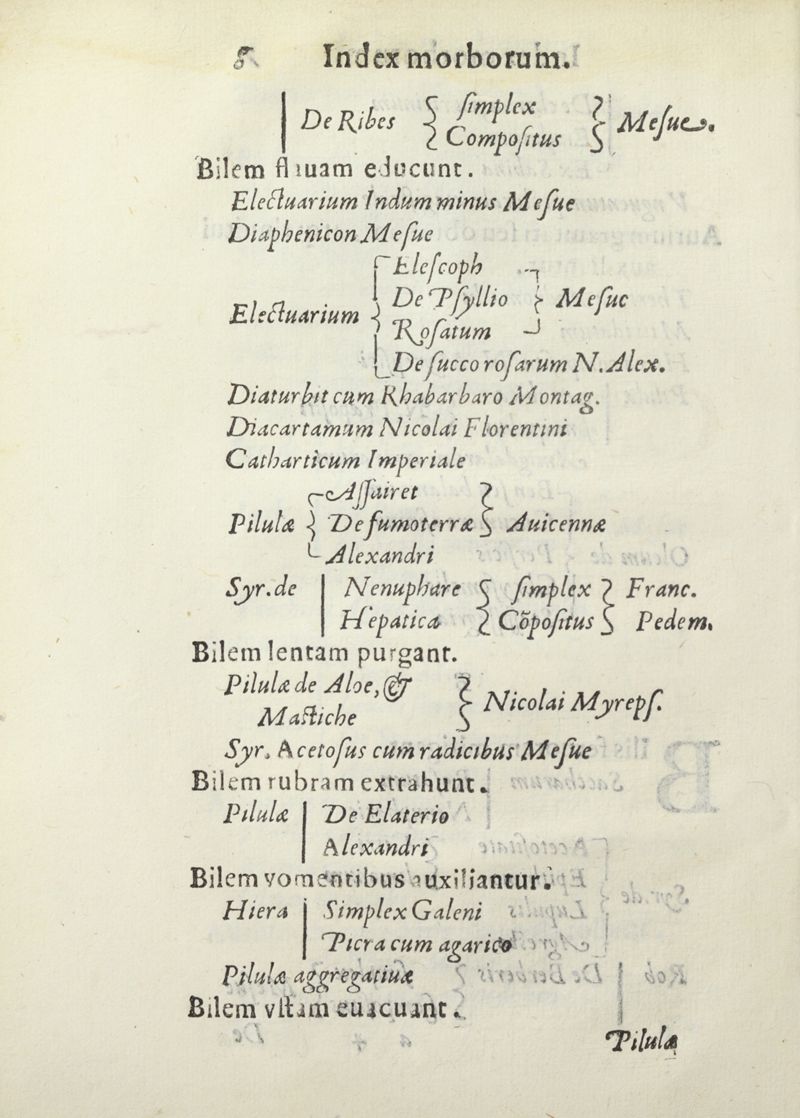 Index morborum.
De Ribes { ſimplex } Meſue.
Compoſitus
Bilem flauam educunt.
Electuarium Indum minus Meſue
Diaphenicon Meſue
Eleſcoph
De Pſyllio } Meſue
Electuarium { Roſatum
De ſucco roſarum N. Alex.
Diaturbit cum Rhabarbaro Montag.
Diacartamum Nicolai Florentini
Catharticum Imperiale
Aſſairet
Pilulæ { De fumoterræ } Auicennæ
Alexandri
Syr. de | Nenuphare { ſimplex } Franc.
Hepatica { Cõpoſitus } Pedem.
Bilem lentam purgant.
Pilulæ de Aloe, & } Nicolai Myrepſ.
Maſtiche
Syr. Acetoſus cum radicibus Meſue
Bilem rubram extrahunt.
Pilulæ | De Elaterio
Alexandri
Bilem vomentibus auxiliantur.
Hiera | Simplex Galeni
Picra cum agarico
Pilulæ aggregatiuæ
Bilem vſtam euacuant.
Pilulæ